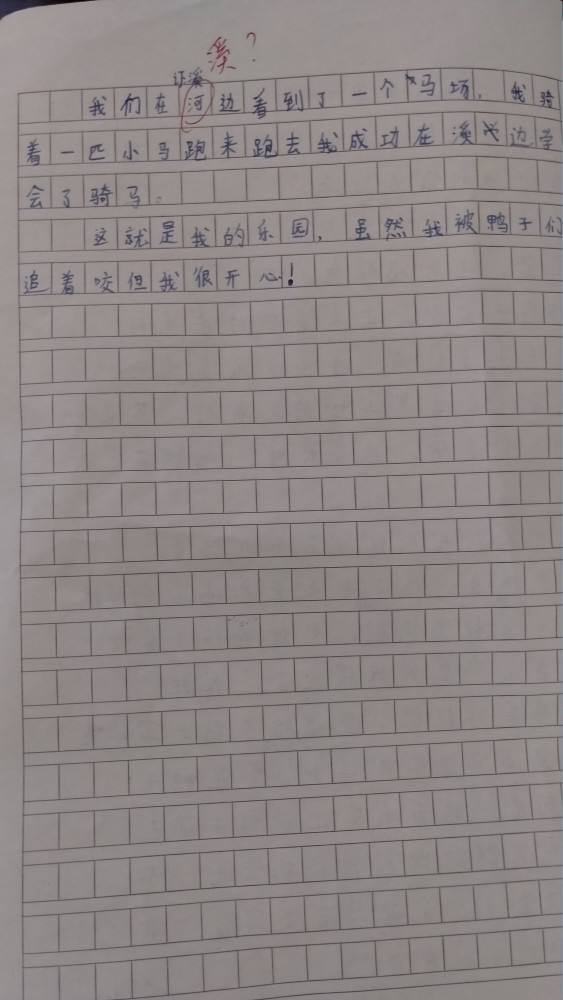 溪？
让溪
我们在河边看到了一个马场，我骑
着一匹小马跑来跑去我成功在溪边学
会了骑马。
这就是我的乐园，虽然我被鸭子们
追着咬但我很开心！